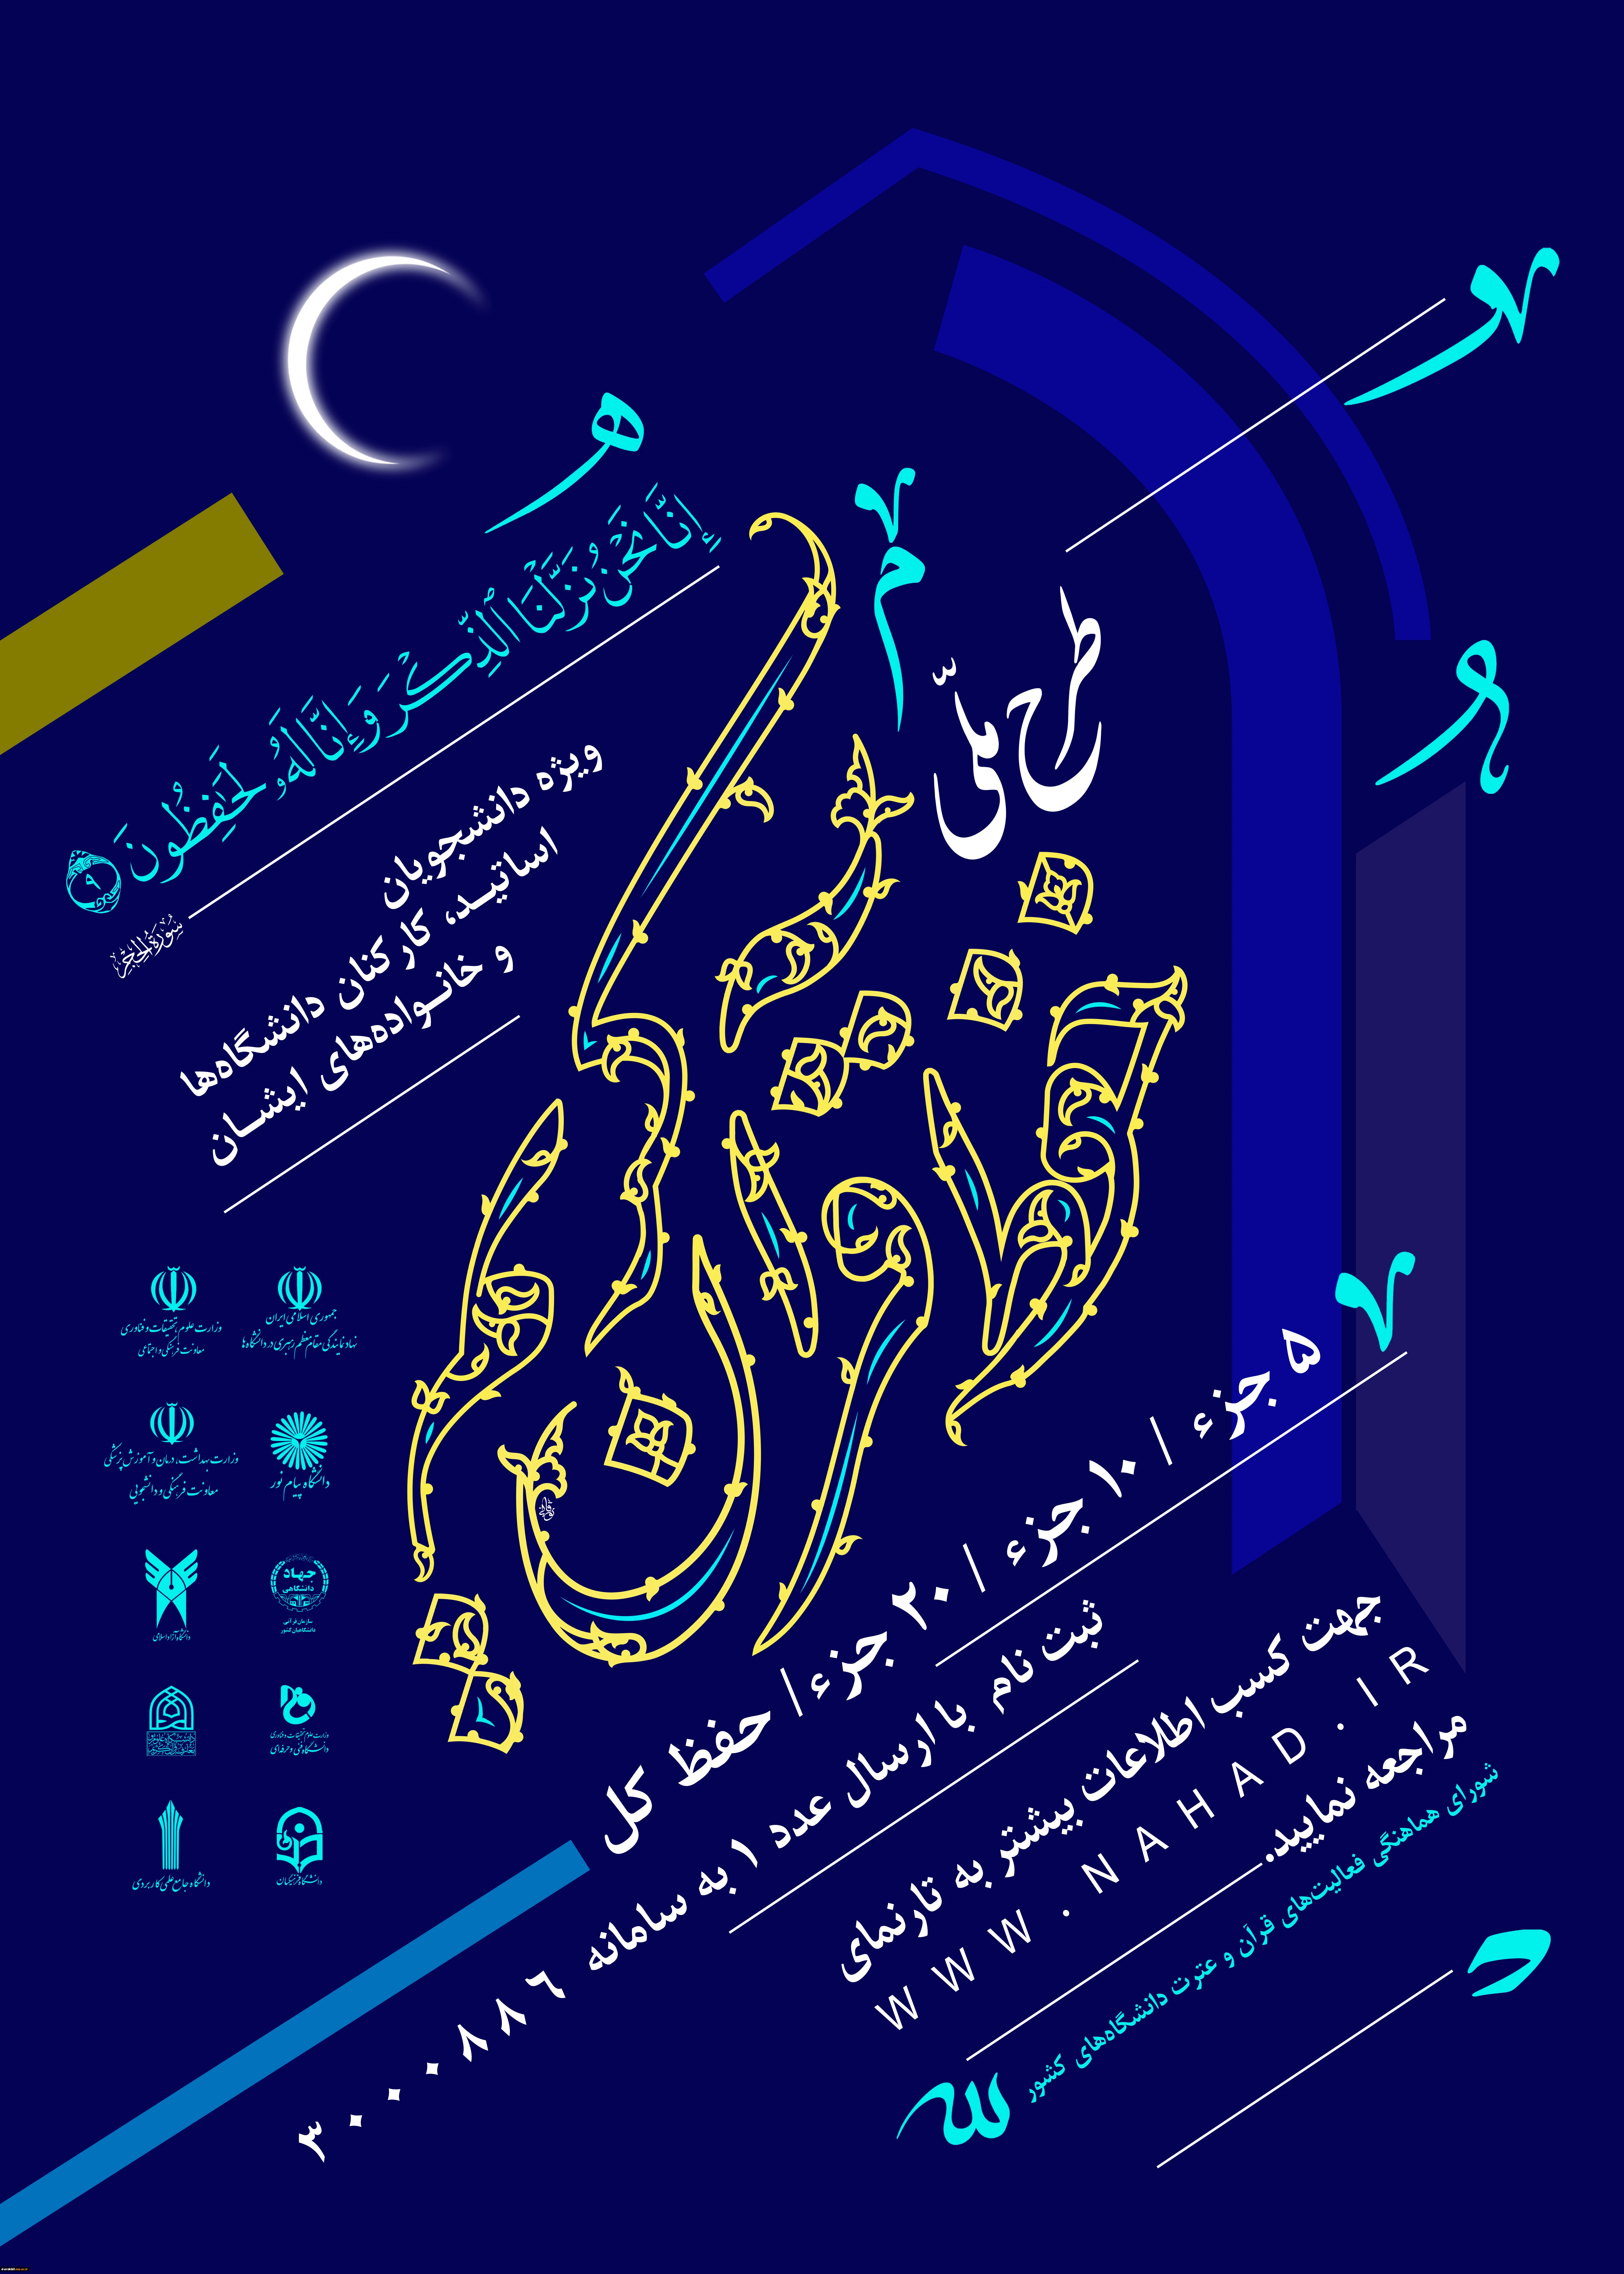 إِنَّا نَحْنُ نَزَّلْنَا ٱلذِّكْرَ وَإِنَّا لَهُۥ لَحَٰفِظُونَ ٩
سورة الحجر
طرح ملّی
حفظ قرآن کریم
ویژه دانشجویان
اساتیـد، کارکنان دانشگاه‌ها
و خانـواده‌های ایشـان
۵ جزء / ۱۰ جزء / ۲۰ جزء / حفظ کل
ثبت نام با ارسال عدد ۱ به سامانه
۳۰۰۰۰۸۸۶
جهت کسب اطلاعات بیشتر به تارنمای
WWW.NAHAD.IR
مراجعه نمایید.
شورای هماهنگی فعالیت‌های قرآن و عترت دانشگاه‌های کشور
جمهوری اسلامی ایران
نهاد نمایندگی مقام معظم رهبری در دانشگاه‌ها
وزارت علوم، تحقیقات و فناوری
معاونت فرهنگی و اجتماعی
دانشگاه پیام نور
وزارت بهداشت، درمان و آموزش پزشکی
معاونت فرهنگی و دانشجویی
جهاد
دانشگاهی
سازمان قرآنی
دانشگاهیان کشور
دانشگاه آزاد اسلامی
وزارت علوم تحقیقات و فناوری
دانشگاه فنی و حرفه‌ای
دانشگاه فرهنگیان
دانشگاه جامع علمی کاربردی